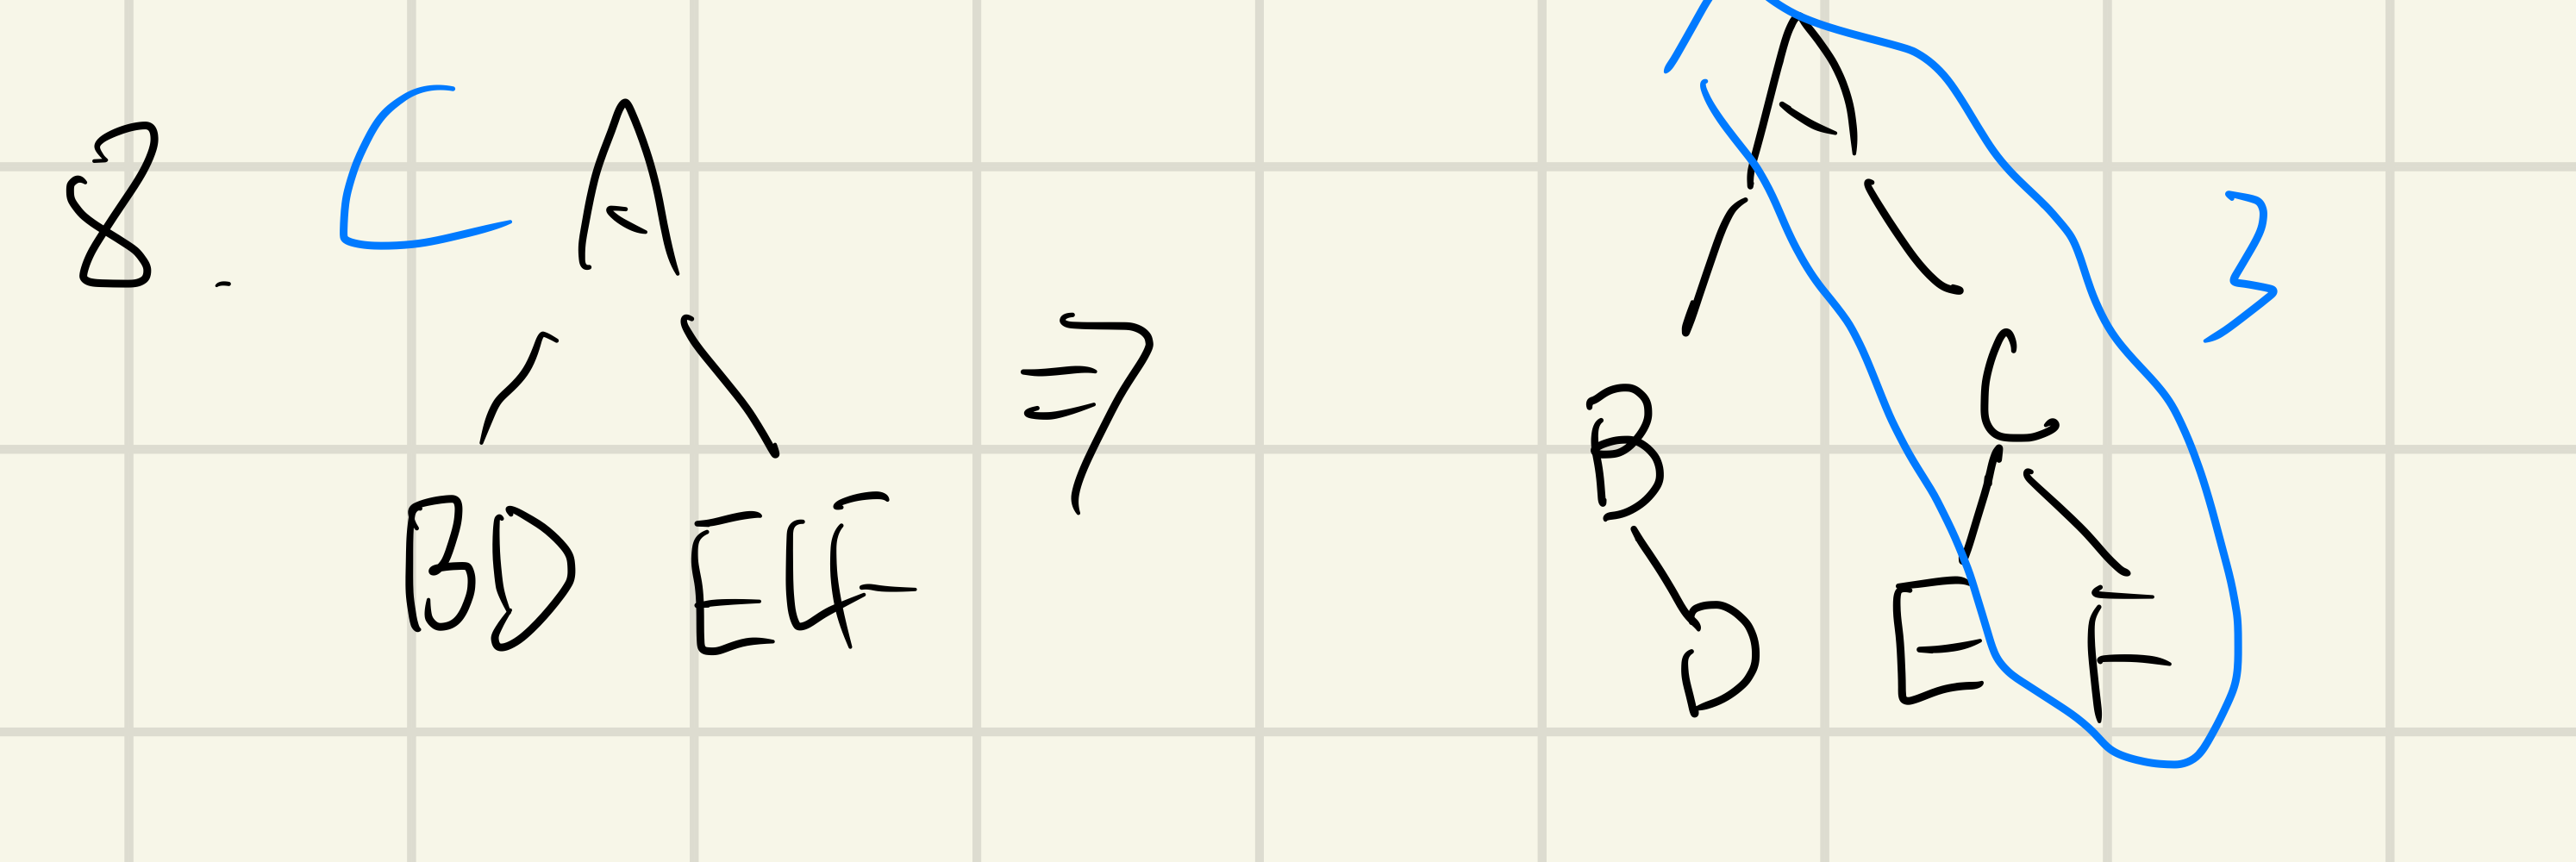 8. C A
BD ECF
⇒
A
3
B C
D E F